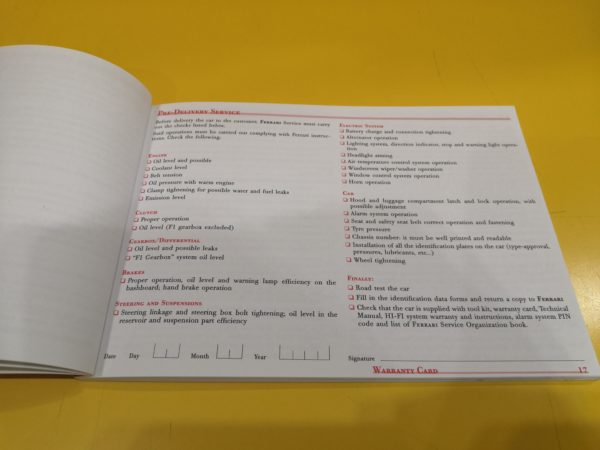 PRE-DELIVERY SERVICE
Before delivery the car to the customer, FERRARI Service must carry
out the checks listed below.
Said operations must be carried out complying with Ferrari instruc-
tions. Check the following:
ENGINE
Oil level and possible
Coolant level
Belt tension
Oil pressure with warm engine
Clamp tightening for possible water and fuel leaks
Emission level
CLUTCH
Proper operation
Oil level (F1 gearbox excluded)
GEARBOX/DIFFERENTIAL
Oil level and possible leaks
"F1 Gearbox" system oil level
BRAKES
Proper operation, oil level and warning lamp efficiency on the
dashboard; hand brake operation
STEERING AND SUSPENSIONS
Steering linkage and steering box bolt tightening; oil level in the
reservoir and suspension part efficiency
Date Day Month Year
ELECTRIC SYSTEM
Battery charge and connection tightening
Alternator operation
Lighting system, direction indicator, stop and warning light opera-
tion
Headlight aiming
Air temperature control system operation
Windscreen wiper/washer operation
Window control system operation
Horn operation
CAR
Hood and luggage compartment latch and lock operation, with
possible adjustment
Alarm system operation
Seat and safety seat belt correct operation and fastening
Tyre pressure
Chassis number: it must be well printed and readable
Installation of all the identification plates on the car (type-approval,
pressures, lubricants, etc...)
Wheel tightening
FINALLY:
Road test the car
Fill in the identification data forms and return a copy to FERRARI
Check that the car is supplied with tool kit, warranty card, Technical
Manual, HI-FI system warranty and instructions, alarm system PIN
code and list of FERRARI Service Organization book.
Signature
WARRANTY CARD 17